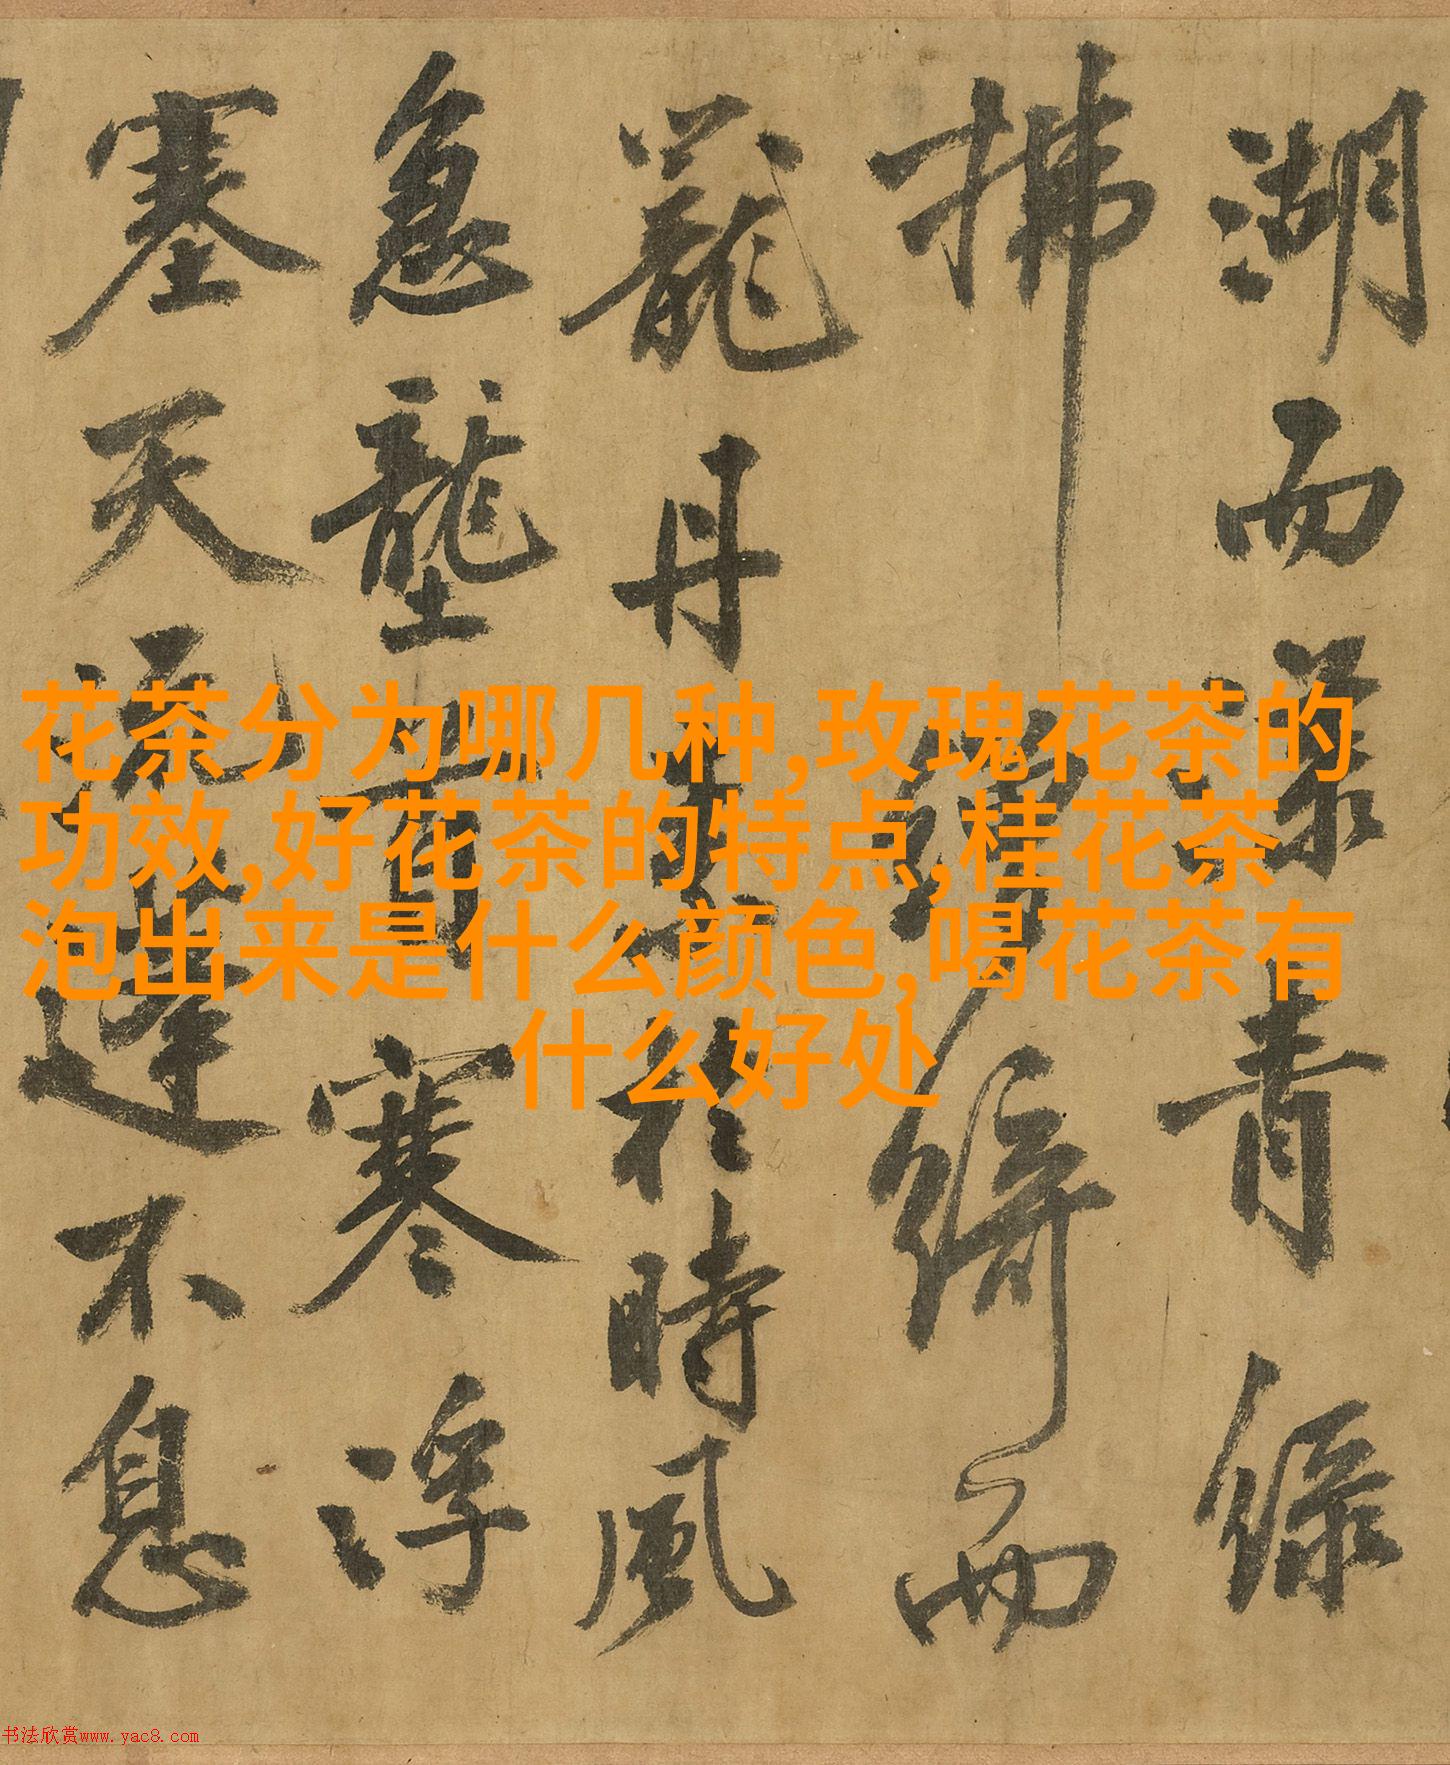 花茶分为哪几种,玫瑰花茶的
功效,好花茶的特点,桂花茶
泡出来是什么颜色,喝花茶有
什么好处
湖而漾青緑
拂綺而
丹於時風
急壟首寒浮
塞天流蓬不息
书法欣赏www.yac8.com